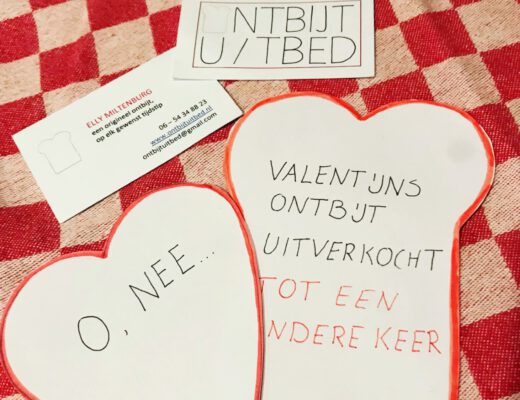 ONTBIJT
U/TBED
ELLY MILTENBURG
een origineel ontbijt,
op elk gewenst tijdstip
06 – 54 34 88 23
www.ontbijtuitbed.nl
ontbijtuitbed@gmail.com
O, NEE...
VALENTIJNS
ONTBIJT
UITVERKOCHT
TOT EEN
NDERE KEER